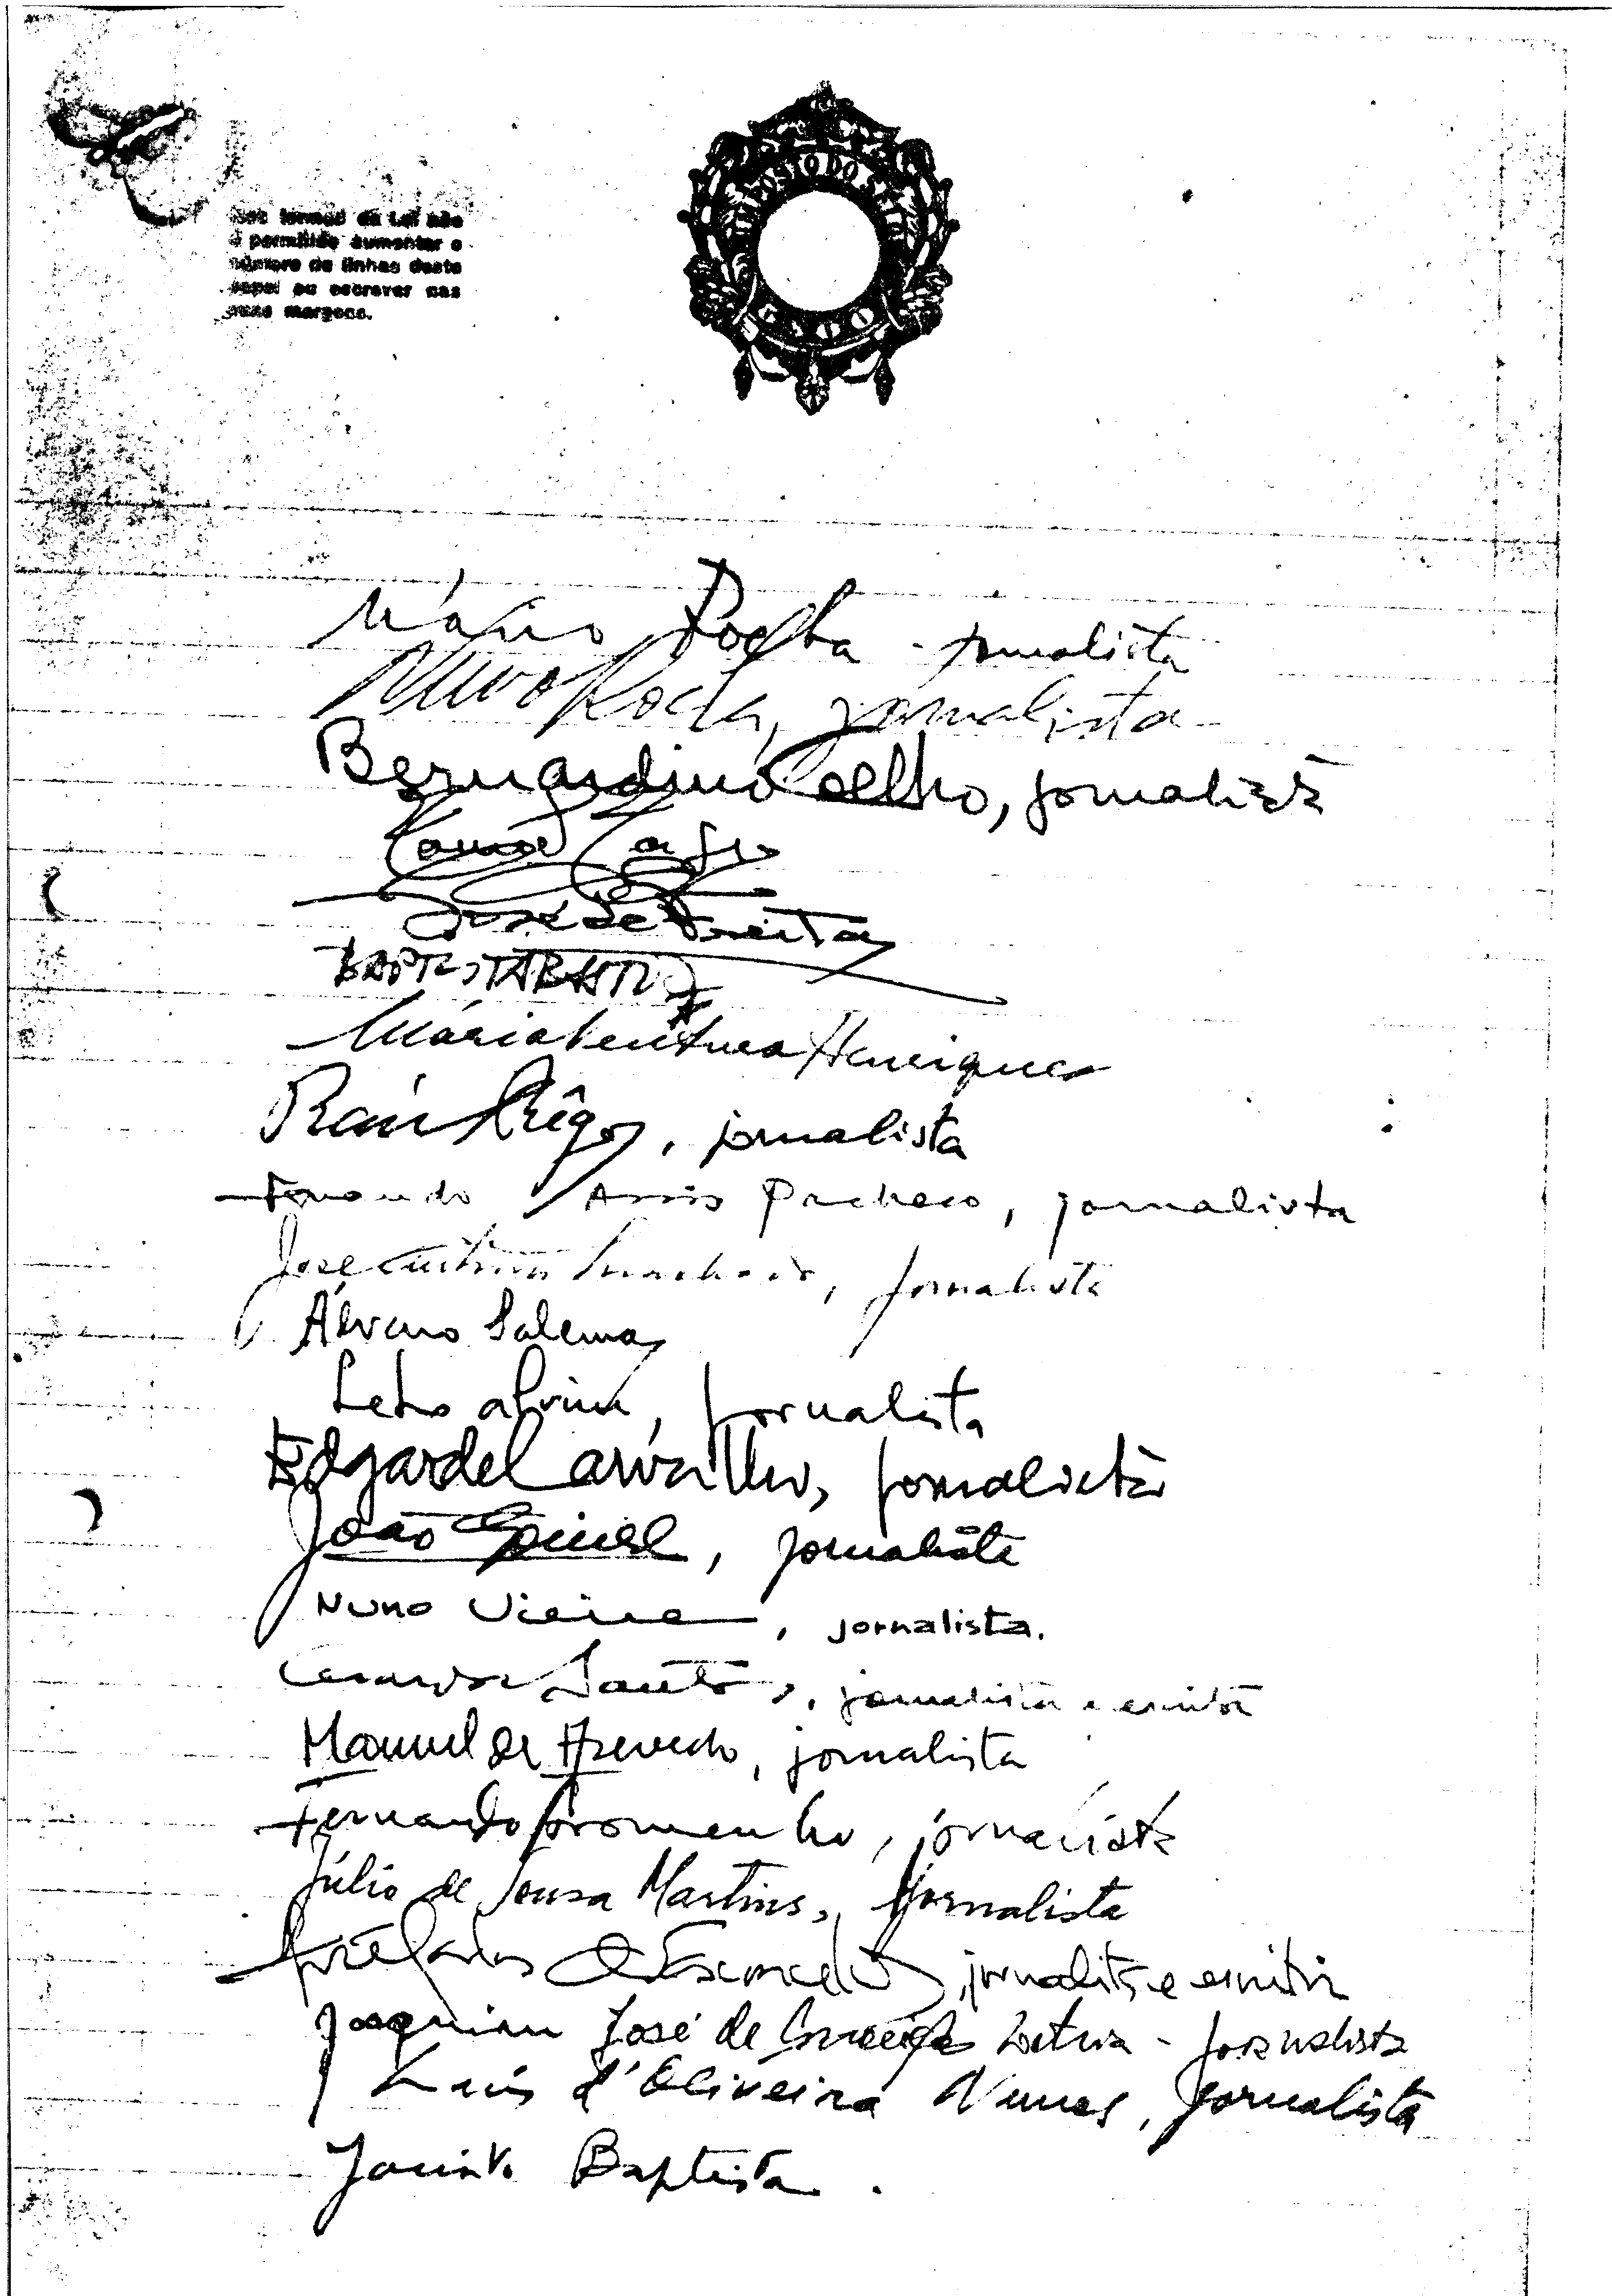 Nos termos da Lei não
é permitido aumentar o
número de linhas deste
papel ou escrever nas
suas margens.
IMPOSTO DO SELO
Mário Rocha - jornalista
Nuno Rocha, jornalista
Bernardino Coelho, jornalista
José de Freitas
BAPTISTA BASTOS
Mário Ventura Henriques
Raúl Rêgo, jornalista
Fernando Assis Pacheco, jornalista
José, jornalista
Álvaro Salema
Pedro Alvim, jornalista
Edgardel Carvalho, jornalista
João Gomes, jornalista
Nuno Vieira, jornalista.
Santos, jornalista e escritor
Manuel de Azevedo, jornalista
Fernando, jornalista
Júlio de Sousa Martins, jornalista
jornalista e escritor
Joaquim José de Letria - jornalista
Luís d'Oliveira Nunes, jornalista
Jacinto Baptista.